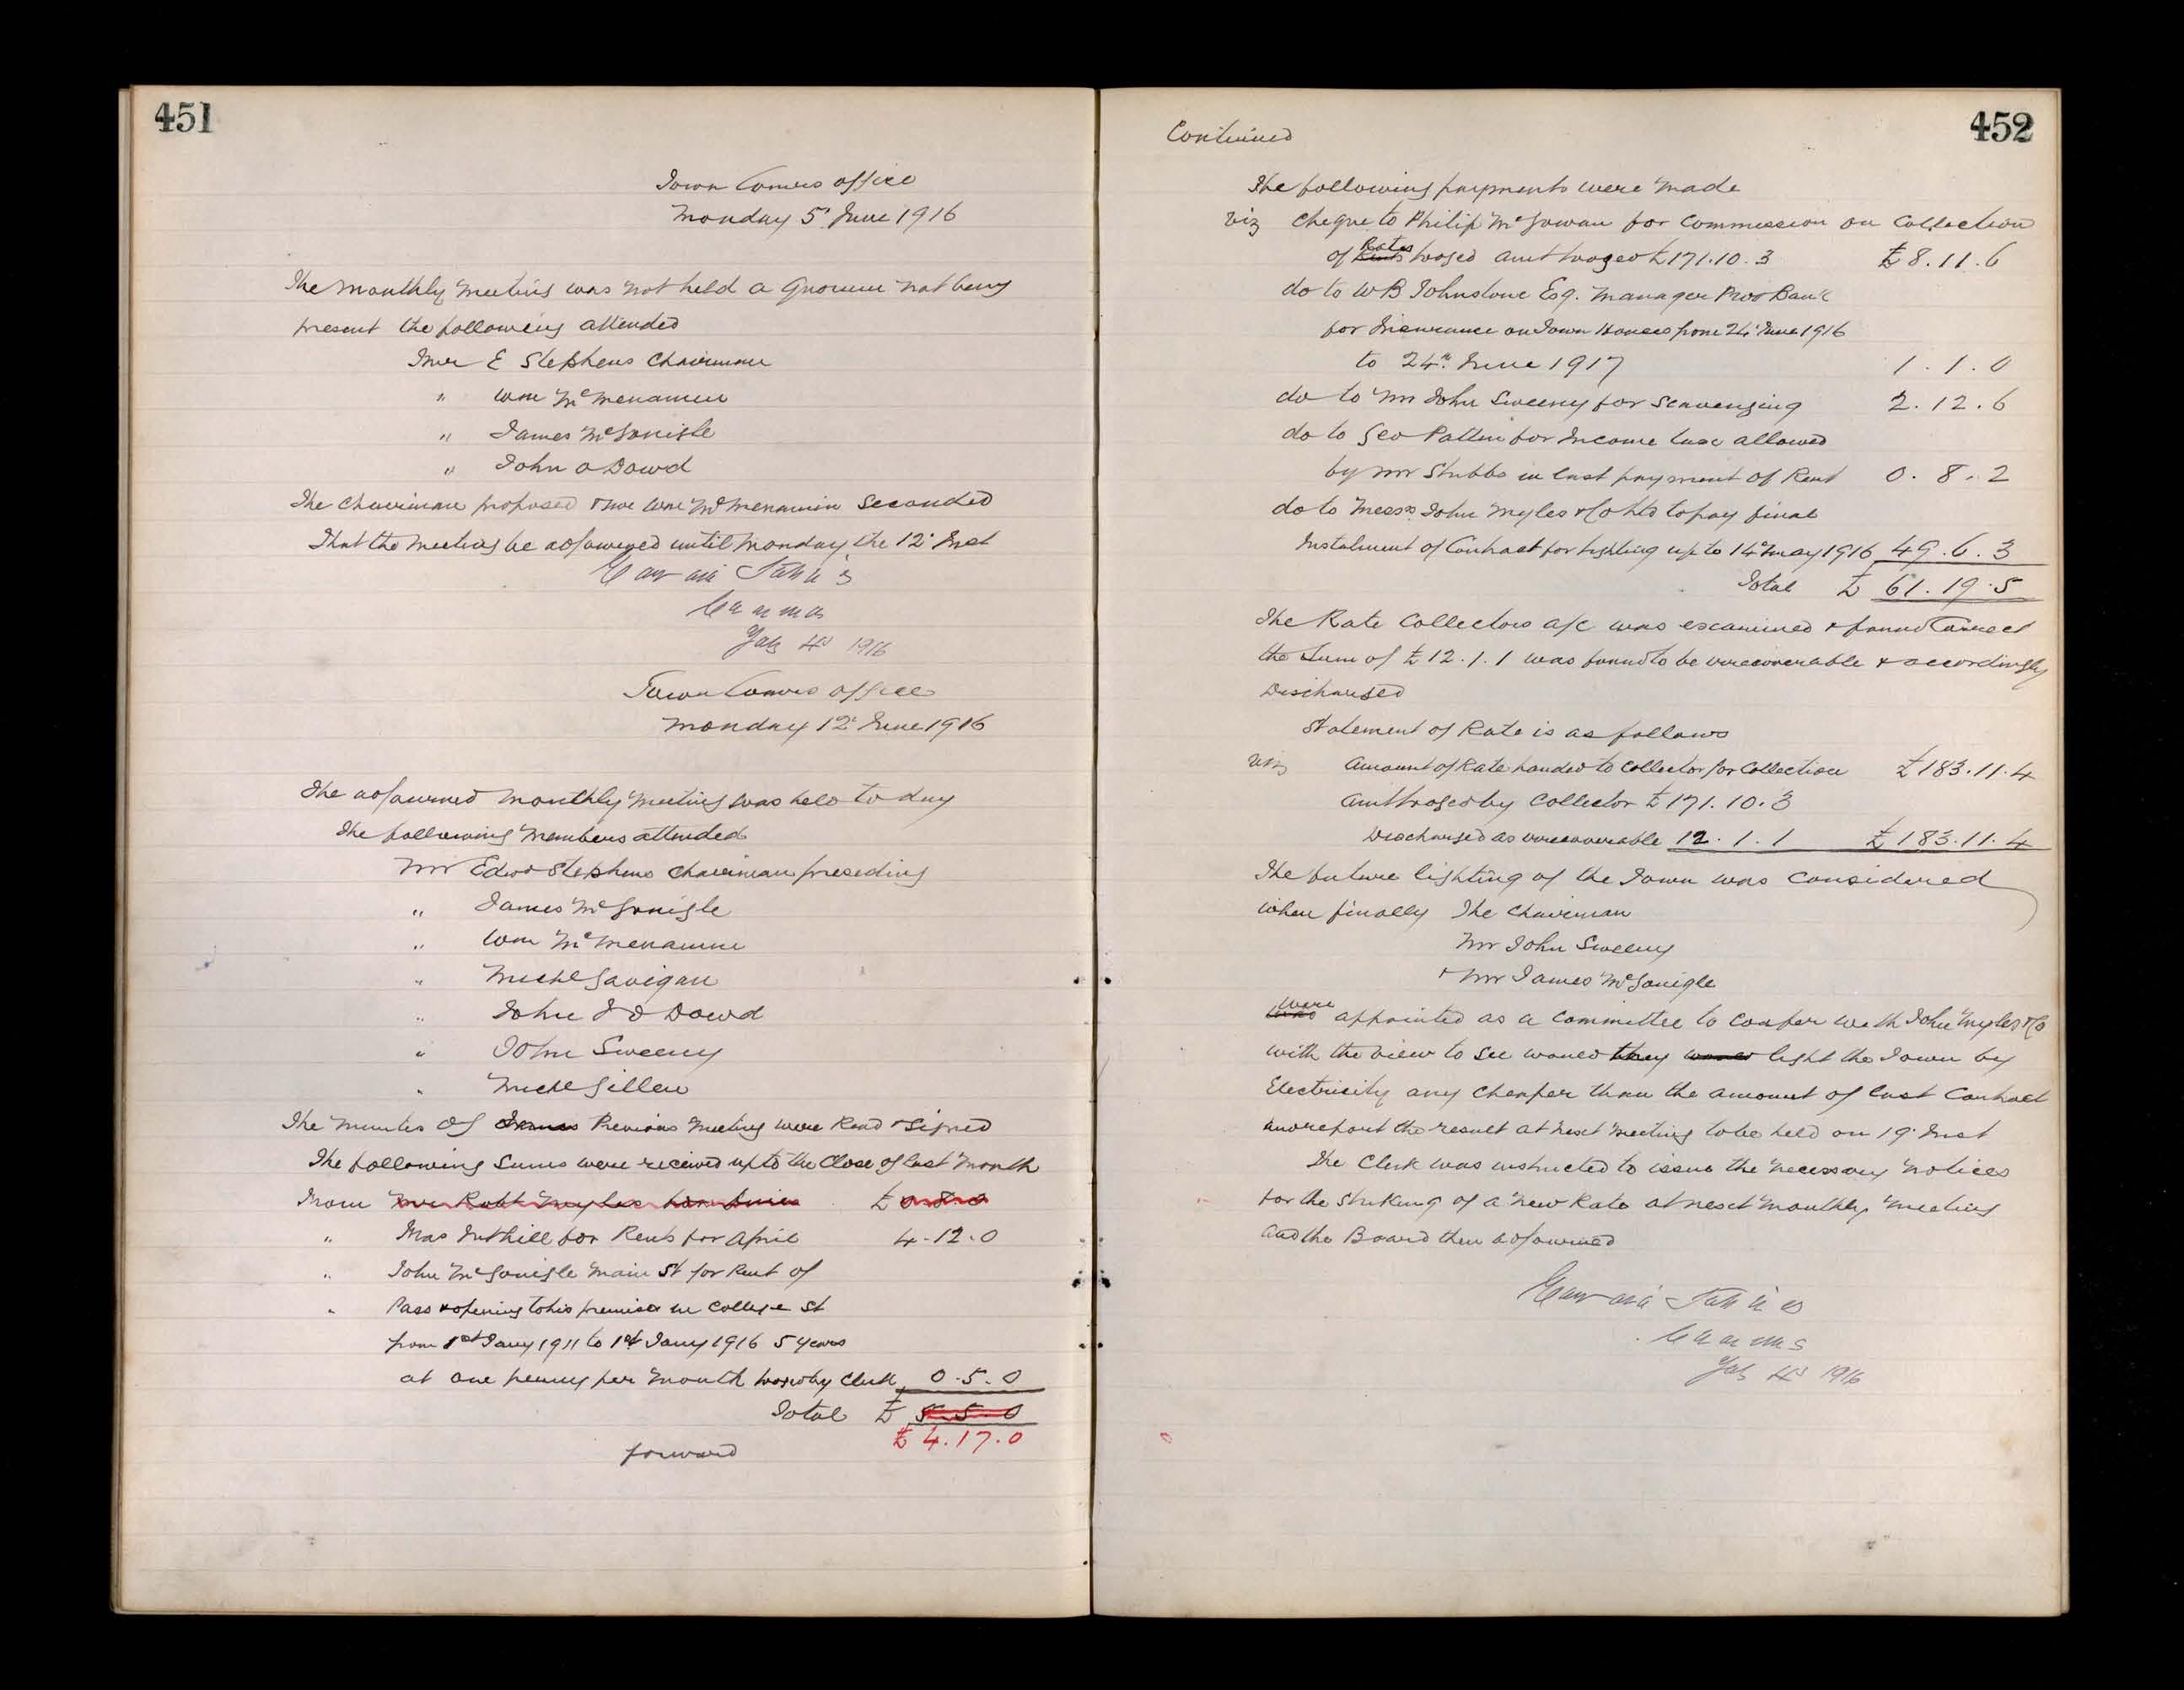 451
Town Comrs office
Monday 5th June 1916
The monthly meeting was not held a Quorum not being
present the following attended
Messrs E Stephens Chairman
" Wm McMenamin
" James McGonigle
" John O Dowd
The Chairman proposed & Mr Wm McMenamin Seconded
That the meeting be adjourned until Monday the 12th Inst
1916
Town Comrs office
Monday 12th June 1916
The adjourned monthly meeting was held to day
The following members attended
Mr Edwd Stephens Chairman presiding
" James McGonigle
" Wm McMenamin
" Michl Gavigan
" John J O Dowd
" John Sweeny
" Michl Gillen
The minutes of Previous meeting were Read & Signed
The following Sums were received up to the Close of last month
From Mr Robt Myles £0.8.0
" Thos Tuthill for Rents for April 4.12.0
" John McGonigle Main St for Rent of
" Pass & opening to his premises in College St
from 1st Jany 1911 to 1st Jany 1916 5 years
at one penny per month lodged by Clerk 0.5.0
Total £ 5.5.0
£ 4.17.0
forward
Continued
452
The following payments were made
viz Cheque to Philip McGowan for Commission on Collection
of Rates lodged amt lodged £171.10.3 £8.11.6
do to WB Johnstone Esq. Manager Prov Bank
for Insurance on Town Houses from 24th June 1916
to 24th June 1917 1.1.0
do to Mr John Sweeny for Scavenging 2.12.6
do to Geo Patten for Income tax allowed
by Mr Stubbs in last payment of Rent 0.8.2
do to Messrs John Myles & Co Ltd to pay final
Instalment of Contract for lighting up to 14th May 1916 49.6.3
Total £ 61.19.5
The Rate Collectors a/c was examined & found Correct
the Sum of £12.1.1 was found to be irrecoverable & accordingly
Discharged
Statement of Rate is as follows
viz Amount of Rate handed to Collector for Collection £183.11.4
Amt lodged by Collector £171.10.3
Discharged as irrecoverable 12.1.1 £183.11.4
The future lighting of the Town was Considered
when finally The Chairman
Mr John Sweeny
& Mr James McGonigle
were
was appointed as a Committee to Confer with John Myles & Co
with the view to see would they would light the Town by
Electricity any Cheaper than the amount of last Contract
and report the result at next meeting to be held on 19th Inst
The Clerk was instructed to issue the necessary notices
for the Striking of a new Rate at next monthly meeting
and the Board then adjourned
1916